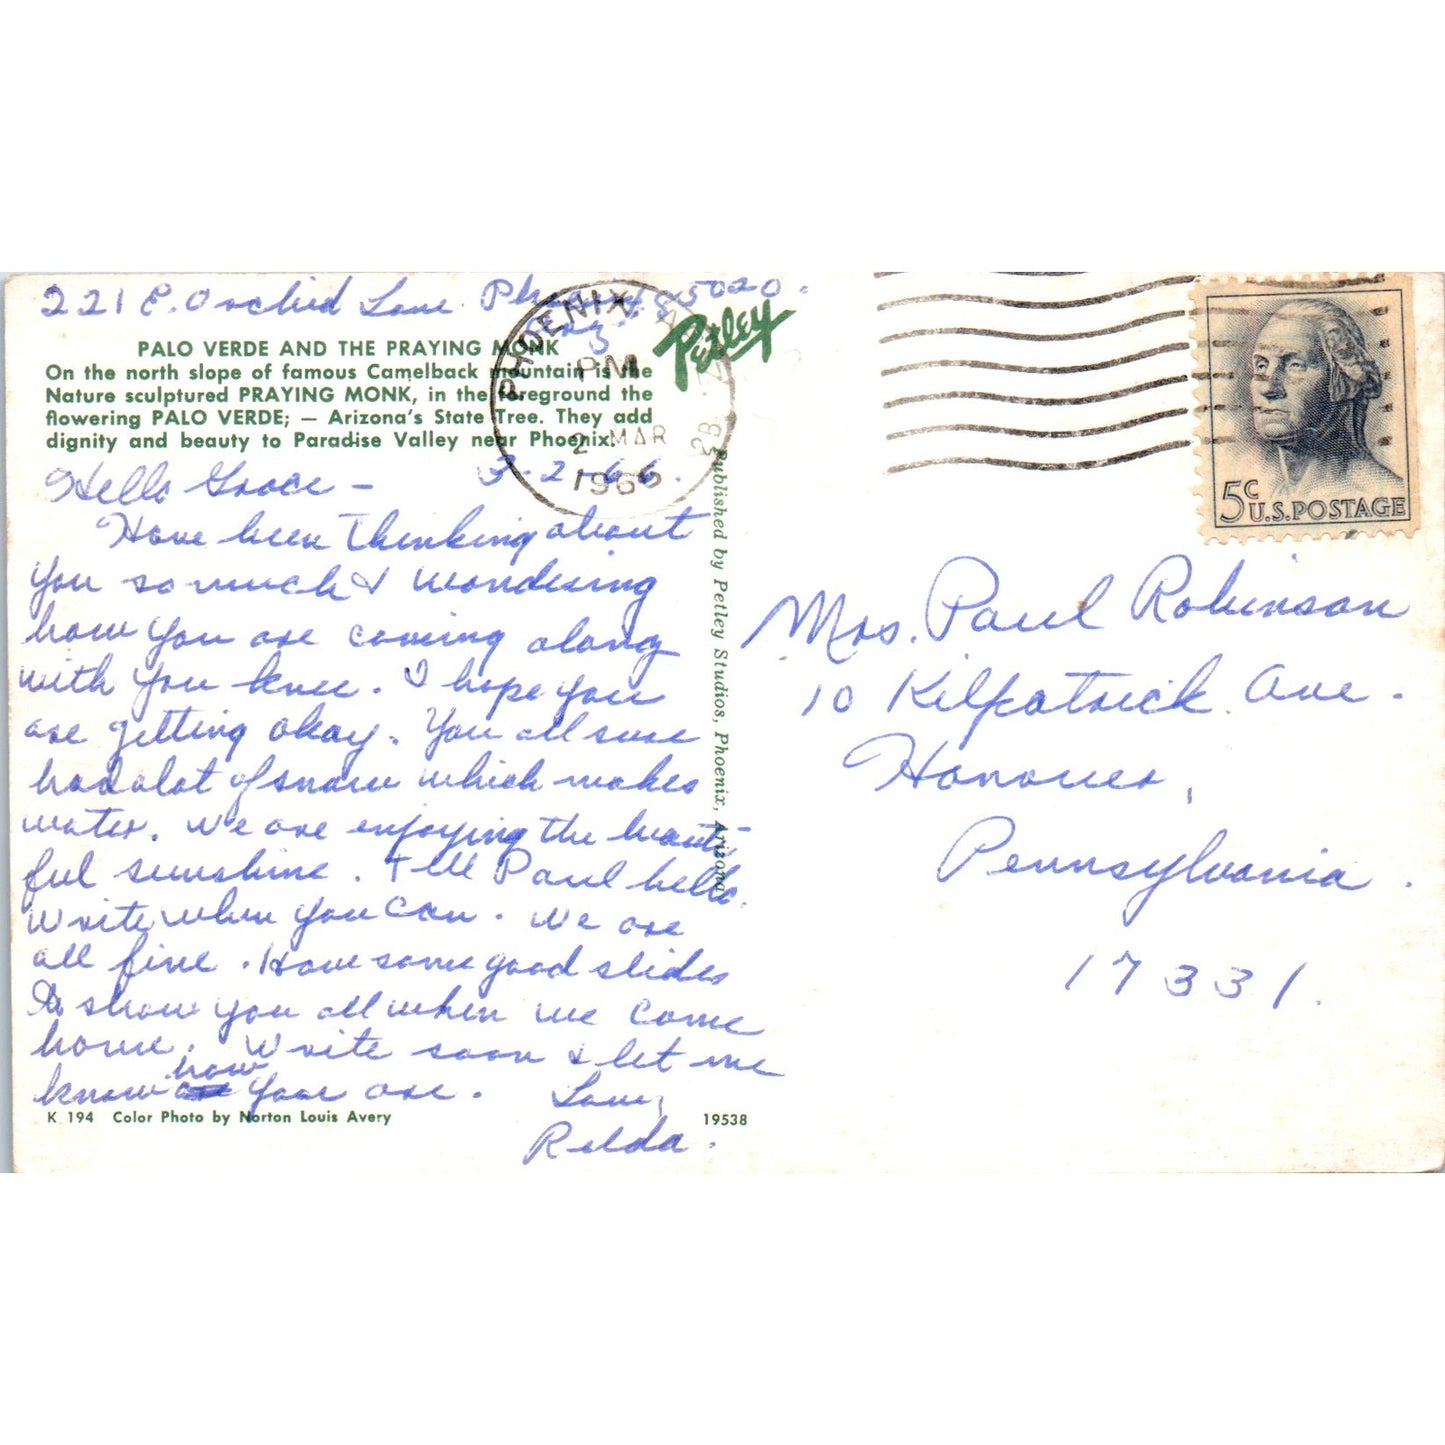 221 E. Orchid Lane. Phoenix 85020.
Ariz
PALO VERDE AND THE PRAYING MONK
On the north slope of famous Camelback mountain is the
Nature sculptured PRAYING MONK, in the foreground the
flowering PALO VERDE; — Arizona's State Tree. They add
dignity and beauty to Paradise Valley near Phoenix.
Petley
PHOENIX, ARIZ
PM
2 MAR
1966
Hello Grace - 3-2-66.
Have been thinking about
you so much & wondering
how you are coming along
with your knee. I hope you
are getting okay. You all sure
had alot of snow which makes
water. We are enjoying the beauti-
ful sunshine. Tell Paul hello.
Write when you can. We are
all fine. Have some good slides
to show you all when we come
home. Write soon & let me
know how your are.
Love,
Relda.
K 194 Color Photo by Norton Louis Avery 19538
Published by Petley Studios, Phoenix, Arizona
5c U.S. POSTAGE
Mrs. Paul Robinson
10 Kilpatrick Ave.
Hanover,
Pennsylvania.
17331.